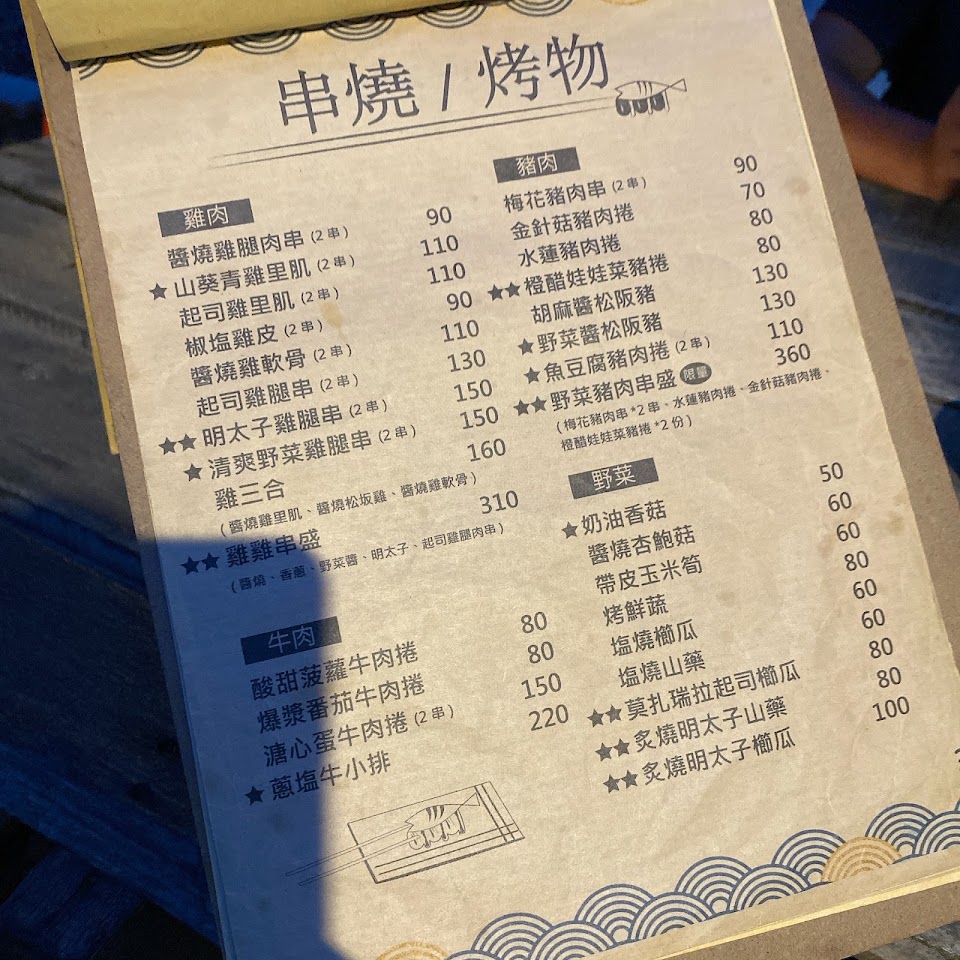 串燒 / 烤物
雞肉
醬燒雞腿肉串 (2 串) 90
★山葵青雞里肌 (2 串) 110
起司雞里肌 (2 串) 110
椒塩雞皮 (2 串) 90
醬燒雞軟骨 (2 串) 110
起司雞腿串 (2 串) 130
★★明太子雞腿串 (2 串) 150
★清爽野菜雞腿串 (2 串) 150
雞三合 160
(醬燒雞里肌、醬燒松坂雞、醬燒雞軟骨)
★★雞雞串盛 310
(醬燒、香蔥、野菜醬、明太子、起司雞腿肉串)
牛肉
酸甜菠蘿牛肉捲 80
爆漿番茄牛肉捲 80
溏心蛋牛肉捲 (2 串) 150
★蔥塩牛小排 220
豬肉
梅花豬肉串 (2 串) 90
金針菇豬肉捲 70
水蓮豬肉捲 80
★★橙醋娃娃菜豬捲 80
胡麻醬松阪豬 130
★野菜醬松阪豬 130
★魚豆腐豬肉捲 (2 串) 110
★★野菜豬肉串盛 限量 360
(梅花豬肉串 *2 串、水蓮豬肉捲、金針菇豬肉捲、
橙醋娃娃菜豬捲 *2 份)
野菜
★奶油香菇 50
醬燒杏鮑菇 60
帶皮玉米筍 60
烤鮮蔬 80
塩燒櫛瓜 60
塩燒山藥 60
★★莫扎瑞拉起司櫛瓜 80
★★炙燒明太子山藥 80
★★炙燒明太子櫛瓜 100